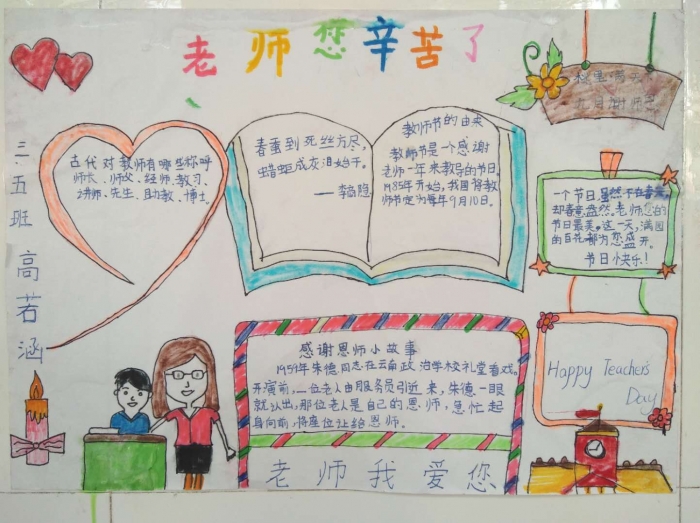 老师您辛苦了
三.五班 高若涵
古代对教师有哪些称呼
师长、师父、经师、教习、
讲师、先生、助教、博士。
春蚕到死丝方尽,
蜡炬成灰泪始干。
——李商隐
教师节的由来
教师节是一个感谢
老师一年来教导的节日。
1985年开始,我国将教
师节定为每年9月10日。
桃李满天
九月谢师恩
一个节日,虽然不在春季,
却春意盎然。老师您的
节日最美。这一天,满园
的百花都为您盛开。
节日快乐!
感谢恩师小故事
1959年朱德同志在云南政治学校礼堂看戏。
开演前,一位老人由服务员引近来,朱德一眼
就认出,那位老人是自己的恩师,急忙起
身向前,将座位让给恩师。
Happy Teacher's
Day
老师我爱您